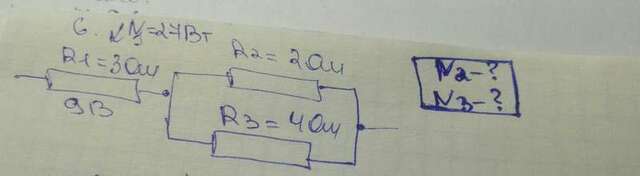 6. N=27Вт
R1=3Ом
9В
R2=2Ом
R3=4Ом
N2-?
N3-?